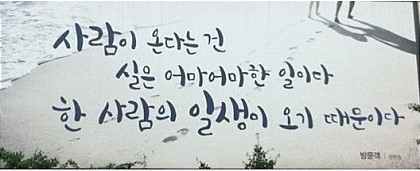 사람이 온다는 건
실은 어마어마한 일이다
한 사람의 일생이 오기 때문이다
방문객